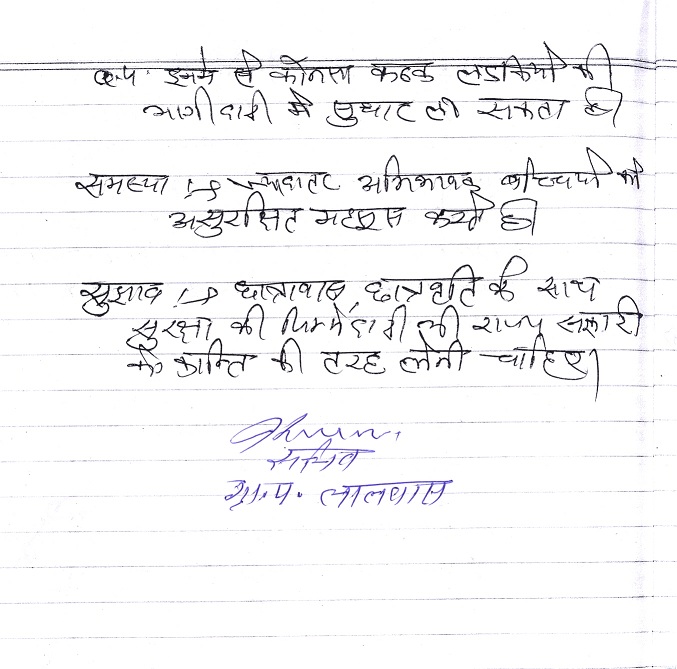 प्र.4. इनमे से कौनसा कदम लडकियो की
भागीदारी मे सुधार ला सकता है।
समस्या :→ ज्यादातर अभिभावक बच्चियो को
असुरक्षित महशूस करते है।
सुझाव :→ छात्रावास, छात्रवृति के साथ
सुरक्षा की जिम्मेदारी भी राज्य सरकारो
को क्रान्ति की तरह लेनी चाहिए।
सचिव
ग्रा.प. लालवास